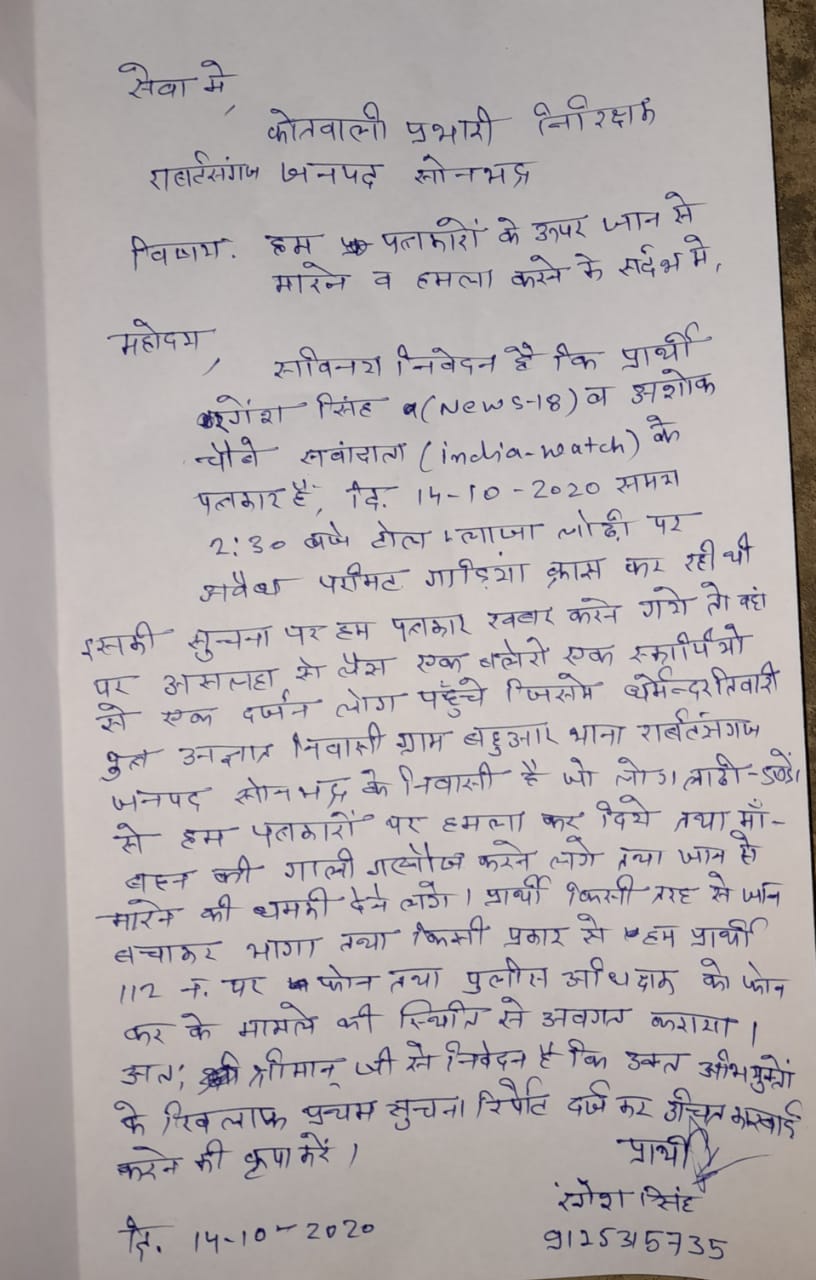 सेवा मे,
कोतवाली प्रभारी निरिक्षक
राबर्टसंगज जनपद सोनभद्र
विषय. हम पत्रकारों के ऊपर जान से
मारने व हमला करने के संर्दभ मे,
महोदय,
सविनय निवेदन है कि प्रार्थी
रंगेश सिंह (News-18) व अशोक
चौबे सवांदाता (india-watch) के
पत्रकार है, दि. 14-10-2020 समय
2:30 बजे टोल प्लाजा लोढ़ी पर
अवैध परमिट गाड़िया क्रास कर रही थी
इसकी सुचना पर हम पत्रकार खबार करने गये तो वहां
पर असलहा से लैस एक बलेरो एक स्कार्पियो
से एक दर्जन लोग पहुँचे जिसमे धर्मेन्दर तिवारी
पुत्र अज्ञात निवासी ग्राम बहुआर थाना रार्बटसंगज
जनपद सोनभद्र के निवासी है जो लोग लाठी-डंडो
से हम पत्रकारों पर हमला कर दिये तथा माँ-
बहन की गाली गल्लौज करने लगे तथा जान से
मारने की धमकी देने लगे। प्रार्थी किसी तरह से जान
बचाकर भागा तथा किसी प्रकार से हम प्रार्थी
112 नं. पर फोन तथा पुलीस अधिक्षक को फोन
कर के मामले की स्थिति से अवगत कराया।
अतः श्रीमान् जी से निवेदन है कि उक्त अभियुक्तों
के खिलाफ प्रथम सुचना रिर्पोट दर्ज कर उचित कारवाई
करने की कृपा करें।
प्रार्थी
रंगेश सिंह
9125315735
दि. 14-10-2020